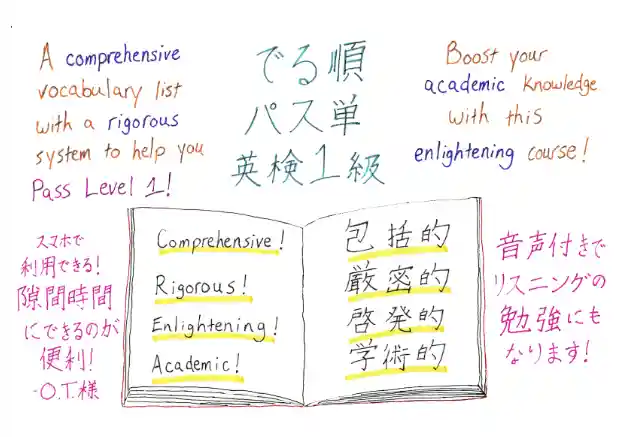 A comprehensive
vocabulary list
with a rigorous
system to help you
Pass Level 1!
でる順
パス単
英検1級
Boost your
academic knowledge
with this
enlightening course!
スマホで
利用できる!
隙間時間
にできるのが
便利!
-O.T.様
Comprehensive!
Rigorous!
Enlightening!
Academic!
包括的
厳密的
啓発的
学術的
音声付きで
リスニングの
勉強にも
なります!